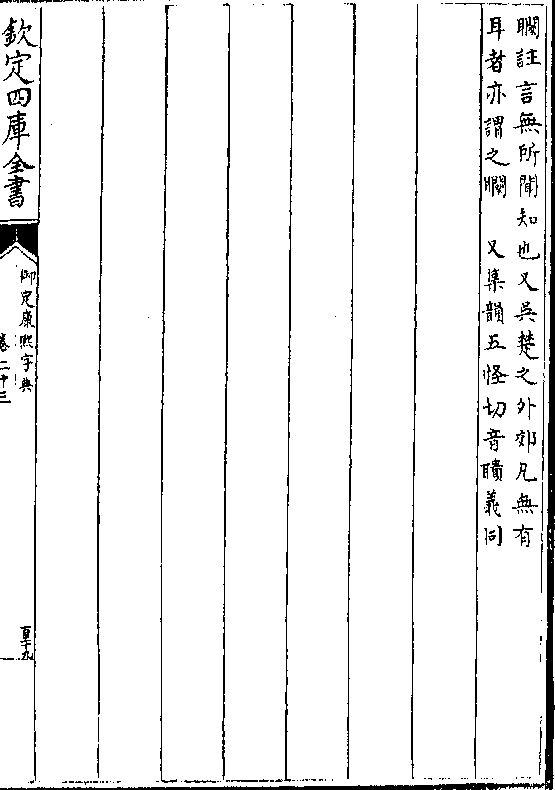 註言無所聞知也又吳楚之外郊凡無有
耳者亦謂之 又集韻五怪切音聵義同
欽定四庫全書
御定康熙字典
卷二十三
百十九